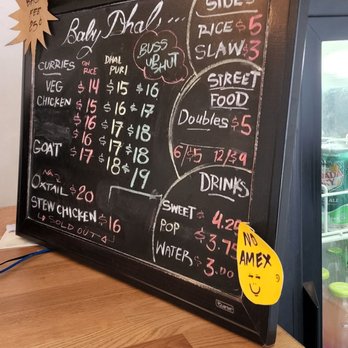 Baby Dhal's...
BUSS
UP
SHUT
CURRIES
ON
RICE
DHAL
PURI
VEG $14 $15 $16
CHICKEN $15 $16 $17
$16 $17 $18
$16 $17 $18
GOAT $17 $18 $19
OXTAIL $20
STEW CHICKEN $16
SOLD OUT
SIDES
RICE $5
SLAW $3
STREET
FOOD
Doubles $5
6/$5 12/$9
DRINKS
SWEET $4.25
POP $3.75
WATER $3.00
NO
AMEX